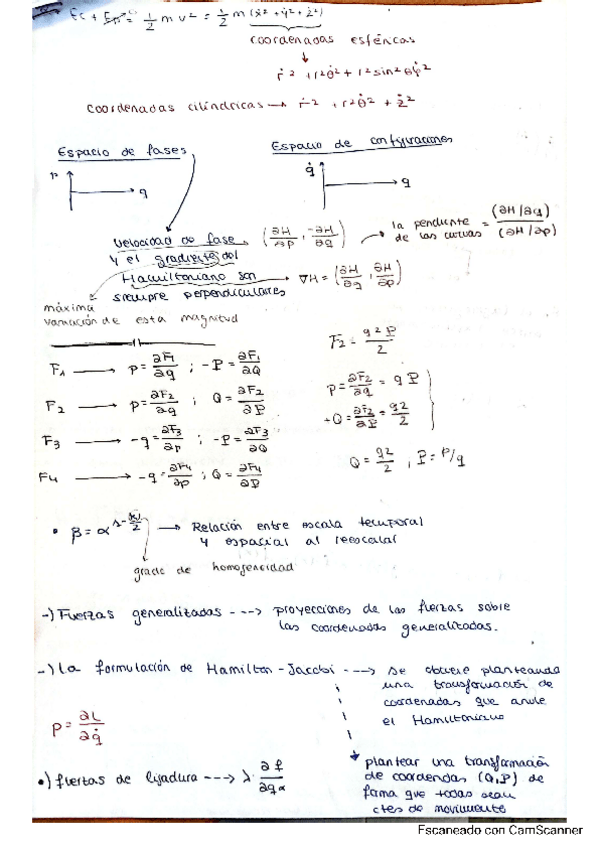 Ec = 1/2 m v² = 1/2 m (ẋ² + ẏ² + ż²)
coordenadas esféricas
ṙ² + r²θ̇² + r² sin²θ φ̇²
coordenadas cilíndricas → ṙ² + r²θ̇² + ż²
Espacio de fases
Espacio de configuraciones
p
q
q̇
q
velocidad de fase (∂H/∂p, -∂H/∂q)
la pendiente de las curvas = (∂H/∂q)/(∂H/∂p)
y el gradiente del
Hamiltoniano son
∇H = (∂H/∂q, ∂H/∂p)
siempre perpendiculares
máxima
variación de esta magnitud
F₁ → p = ∂F₁/∂q ; -P = ∂F₁/∂Q
F₂ → p = ∂F₂/∂q ; Q = ∂F₂/∂P
F₃ → -q = ∂F₃/∂p ; -P = ∂F₃/∂Q
F₄ → -q = ∂F₄/∂p ; Q = ∂F₄/∂P
F₂ = q²P/2
p = ∂F₂/∂q = qP
Q = ∂F₂/∂P = q²/2
Q = q²/2 ; P = p/q
• β = α^(1-k/2) → Relación entre escala temporal
y espacial al reescalar
grado de homogeneidad
-) Fuerzas generalizadas ---> proyecciones de las fuerzas sobre
las coordenadas generalizadas.
-) La formulación de Hamilton-Jacobi ---> se obtiene planteando
una transformación de
coordenadas que anule
el Hamiltoniano
p = ∂L/∂q̇
plantear una transformación
de coordendas (Q,P) de
forma que todas sean
ctes de movimiento
•) fuerzas de ligadura ---> λ ∂f/∂qα
Escaneado con CamScanner